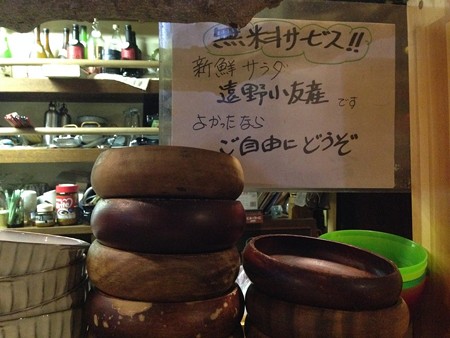 無料サービス!!
新鮮サラダ
遠野小友産です
よかったなら
ご自由にどうぞ